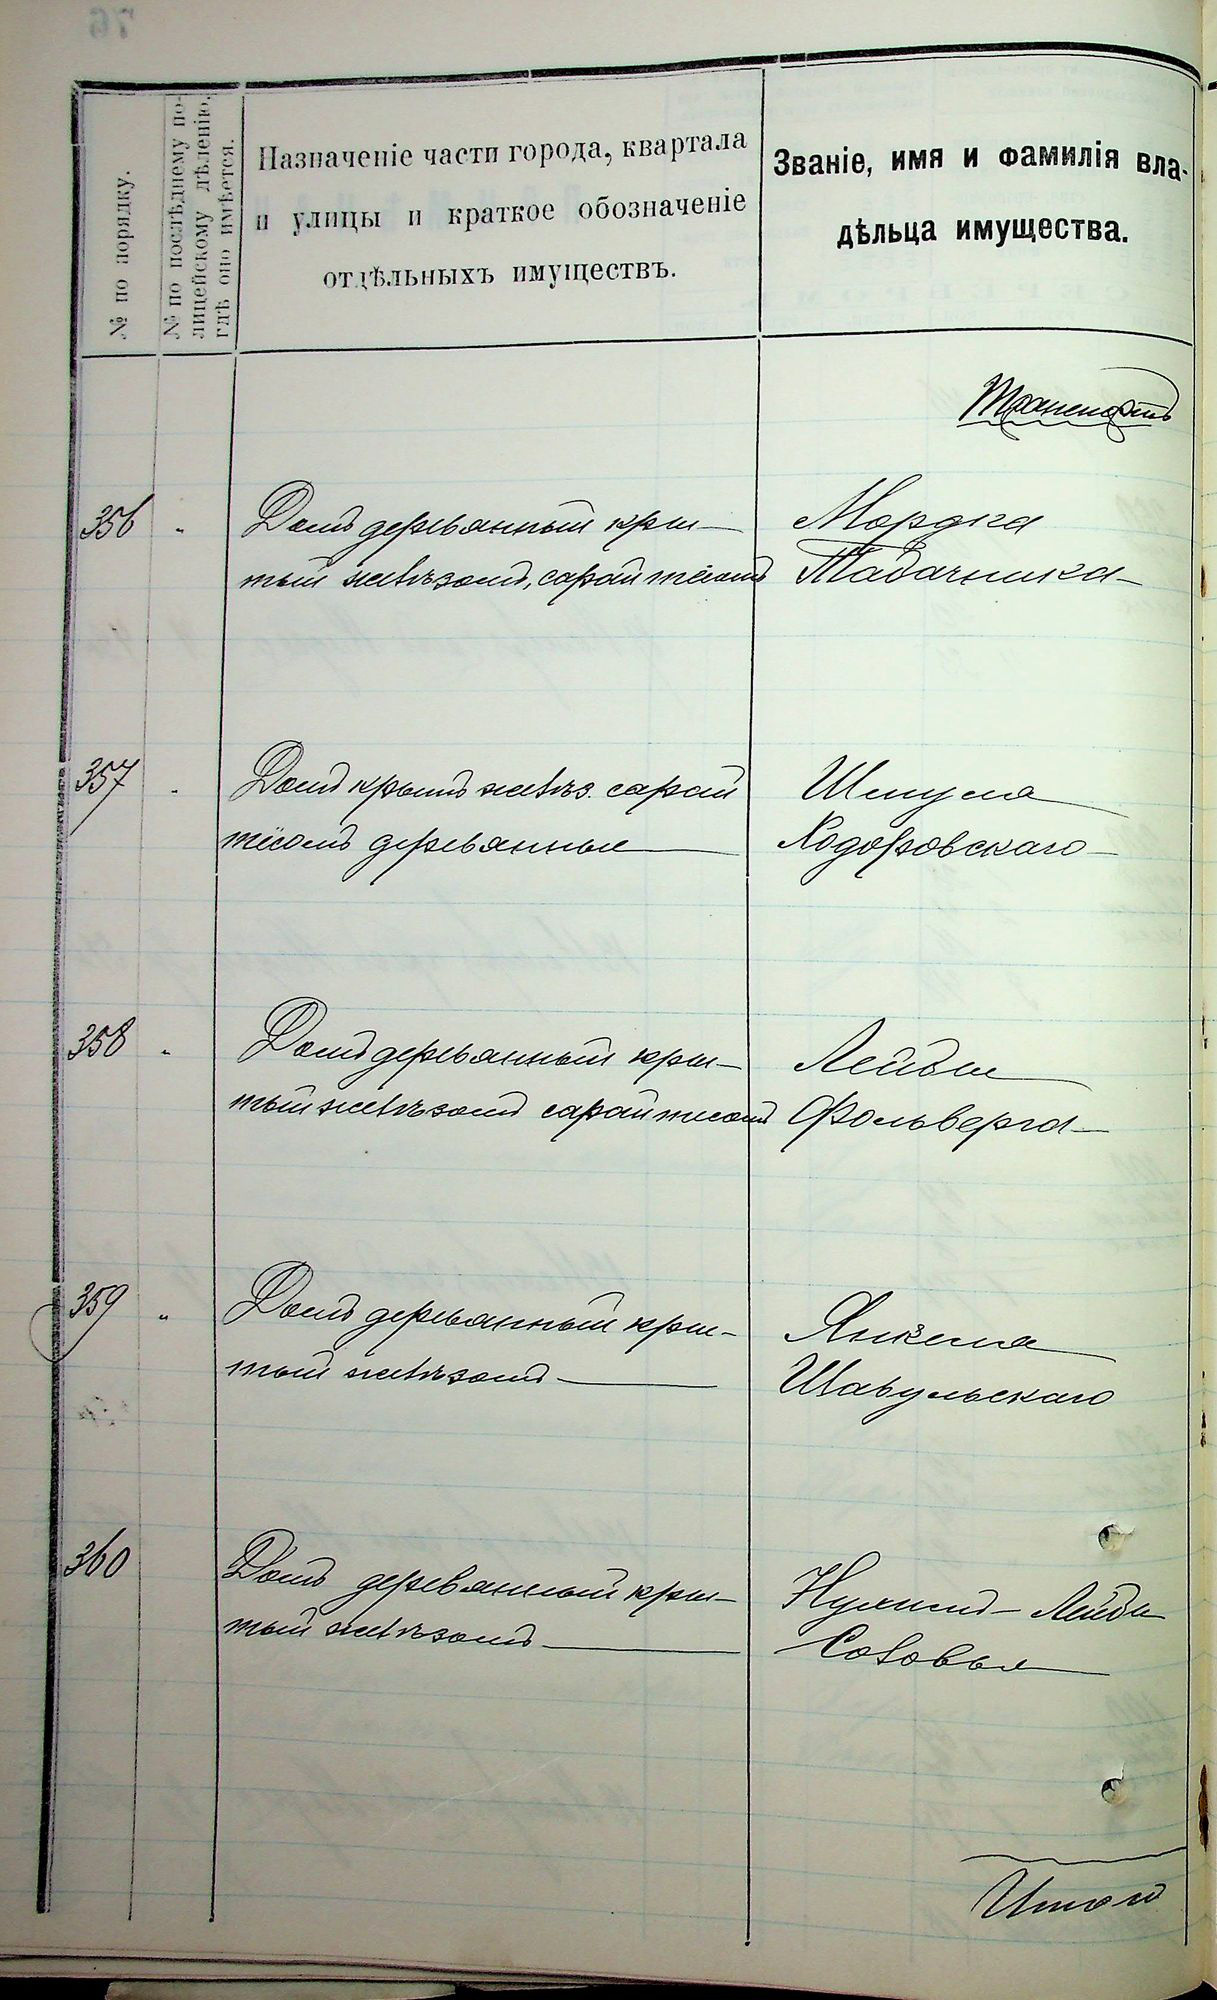 № по порядку.
№ по послѣднему по-
лицейскому дѣленію,
гдѣ оно имѣется.
Назначеніе части города, квартала
и улицы и краткое обозначеніе
отдѣльныхъ имуществъ.
Званіе, имя и фамилія вла-
дѣльца имущества.
Транспортъ
356 " Домъ деревянный кры-
тый желѣзомъ, сарай тёсомъ
Мордка
Табачника
357 " Домъ крытъ желѣз. сарай
тёсомъ деревянные
Шмуля
Ходоровскаго
358 " Домъ деревянный кры-
тый желѣзомъ сарай тесомъ
Лейбы
Фольверга
359 " Домъ деревянный кры-
тый желѣзомъ
Янкеля
Шавульскаго
360 Домъ деревянный кры-
тый желѣзомъ
Нухимъ-Лейбы
Итого